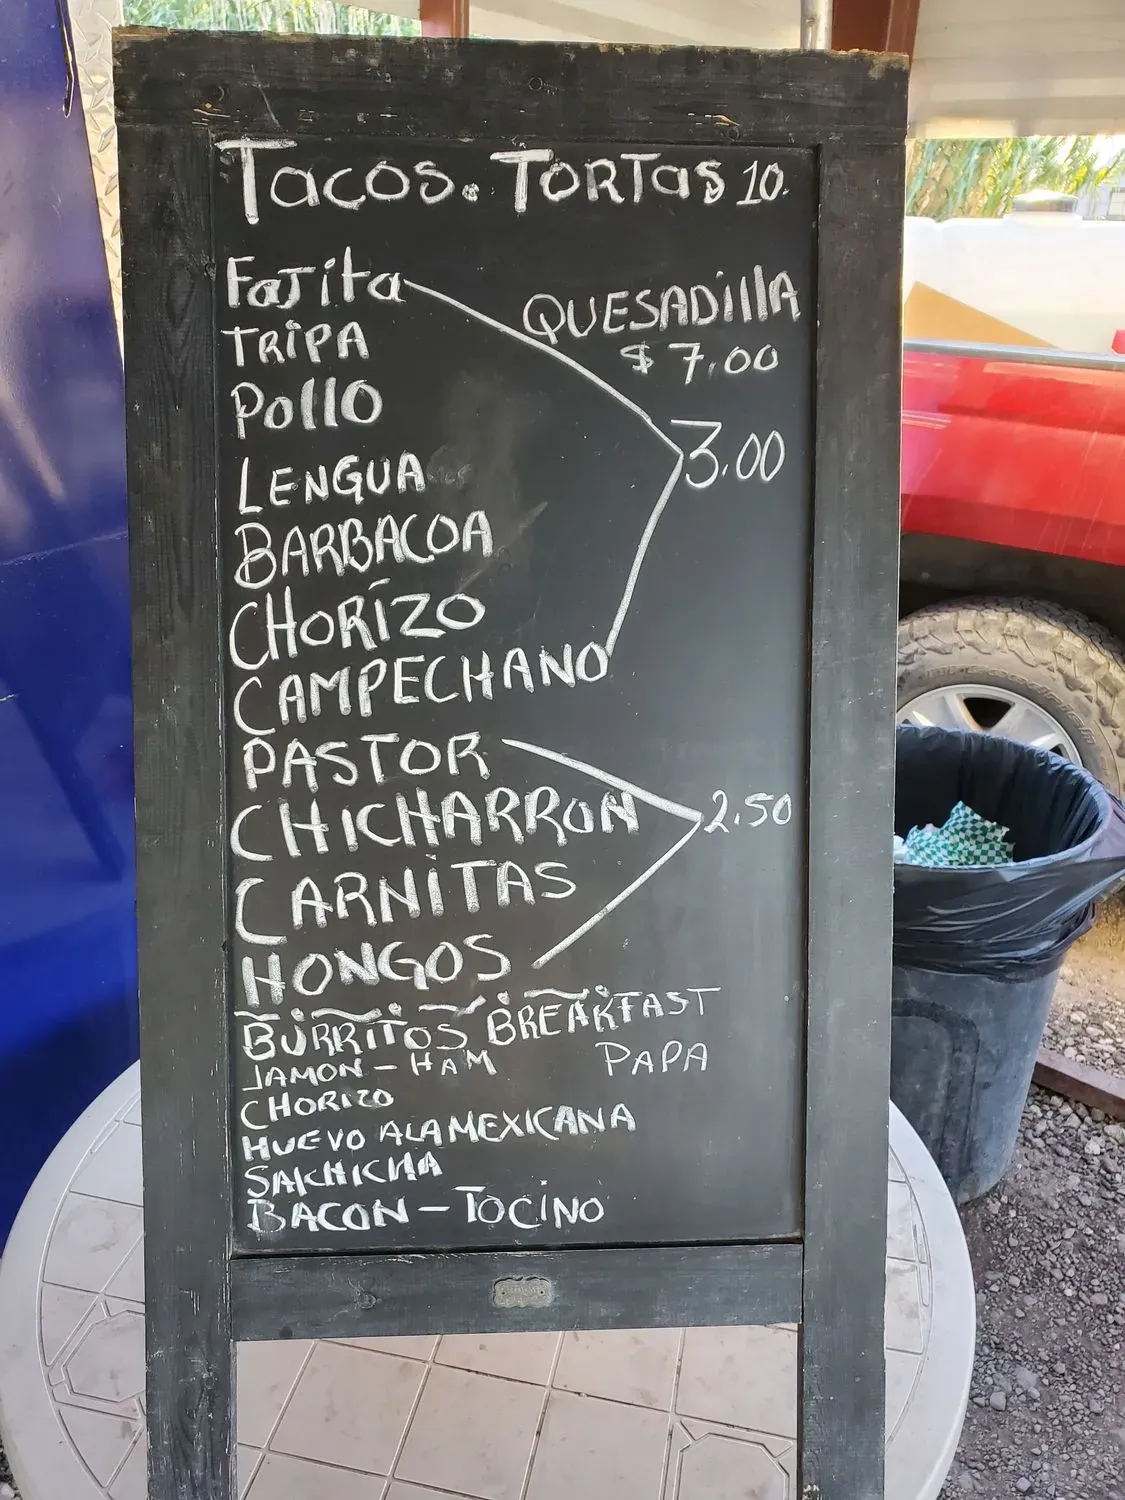 Tacos. TORTas 10.
Fajita
QUESADillA
$ 7.00
TRiPA
Pollo
3.00
LENGUA
BARBACOA
CHORIZO
CAMPECHANO
PASTOR
CHICHARRON
2.50
CARNiTAS
HONGOS
BURRiTOS BREAKFAST
JAMON - HAM PAPA
CHORIZO
HUEVO ALA MEXICANA
SALCHICHA
BACON - TOCiNO